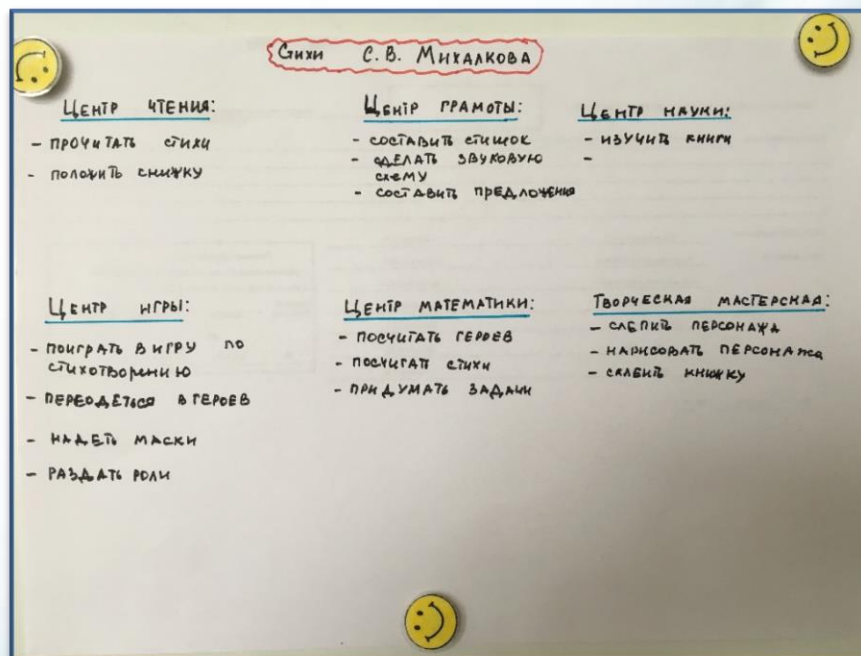 Стихи С.В. Михалкова
Центр чтения:
- прочитать стихи
- положить книжку
Центр грамоты:
- составить стишок
- сделать звуковую
схему
- составить предложения
Центр науки:
- изучить книги
-
Центр игры:
- поиграть в игру по
стихотворению
- переодеться в героев
- надеть маски
- раздать роли
Центр математики:
- посчитать героев
- посчитать стихи
- придумать задачи
Творческая мастерская:
- слепить персонажа
- нарисовать персонажа
- склеить книжку